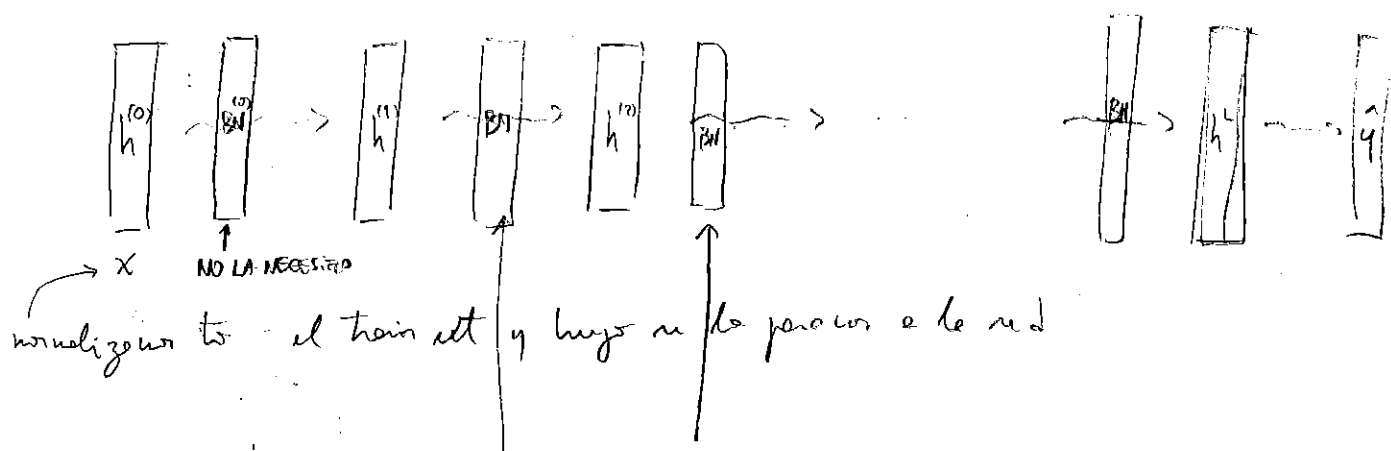 h^(0) BN^(0) h^(1) BN h^(2) BN ... BN h^L ŷ
x NO LA NECESITO
normalizamos el train set y luego se lo pasamos a la red